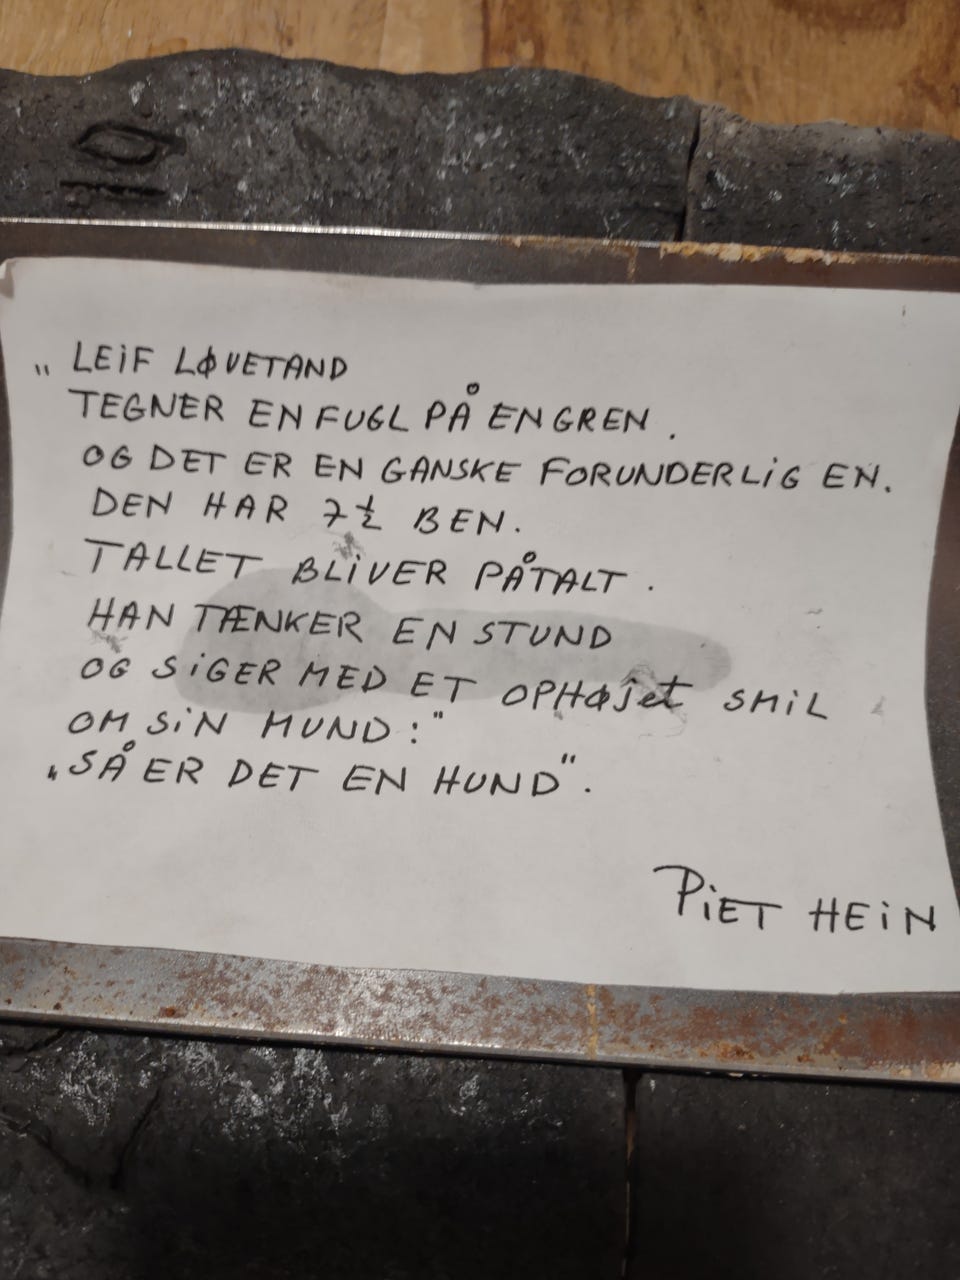 „ LEiF LØVETAND
TEGNER EN FUGL PÅ EN GREN .
OG DET ER EN GANSKE FORUNDERLiG EN.
DEN HAR 7½ BEN.
TALLET BLiVER PÅTALT .
HAN TÆNKER EN STUND
OG SiGER MED ET OPHØjet SMiL
OM SiN MUND :"
„SÅ ER DET EN HUND".
PiET HEiN